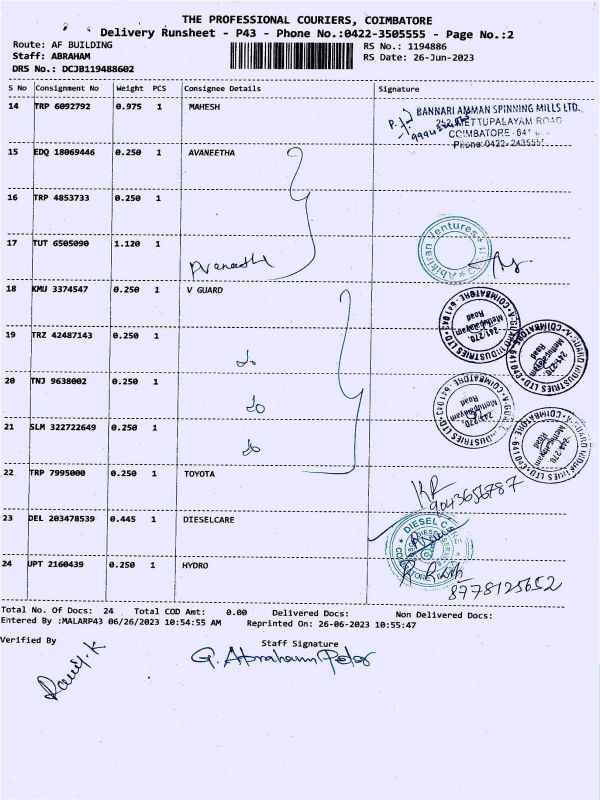 THE PROFESSIONAL COURIERS, COIMBATORE
Delivery Runsheet - P43 - Phone No.:0422-3505555 - Page No.:2
Route: AF BUILDING RS No.: 1194886
Staff: ABRAHAM RS Date: 26-Jun-2023
DRS No.: DCJB119488602
S No Consignment No Weight PCS Consignee Details Signature
14 TRP 6092792 0.975 1 MAHESH
BANNARI AMMAN SPINNING MILLS LTD.
252, METTUPALAYAM ROAD
COIMBATORE - 641
Phone: 0422-2435555
15 EDQ 18069446 0.250 1 AVANEETHA
16 TRP 4853733 0.250 1
17 TUT 6505090 1.120 1
Abikiran Ventures
18 KMU 3374547 0.250 1 V GUARD
V-GUARD INDUSTRIES LTD COIMBATORE - 641 043
241, 270 Mettupalayam Road
19 TRZ 42487143 0.250 1
V-GUARD INDUSTRIES LTD COIMBATORE - 641 043
241, 270 Mettupalayam Road
20 TNJ 9638002 0.250 1 do
V-GUARD INDUSTRIES LTD COIMBATORE - 641 043
241, 270 Mettupalayam Road
21 SLM 322722649 0.250 1 do
V-GUARD INDUSTRIES LTD COIMBATORE - 641 043
241, 270 Mettupalayam Road
22 TRP 7995000 0.250 1 TOYOTA
9043656787
23 DEL 203478539 0.445 1 DIESELCARE
DIESEL CARE COIMBATORE
24 JPT 2160439 0.250 1 HYDRO
8778125652
Total No. Of Docs: 24 Total COD Amt: 0.00 Delivered Docs: Non Delivered Docs:
Entered By :MALARP43 06/26/2023 10:54:55 AM Reprinted On: 26-06-2023 10:55:47
Verified By Staff Signature
G. Abraham Peter